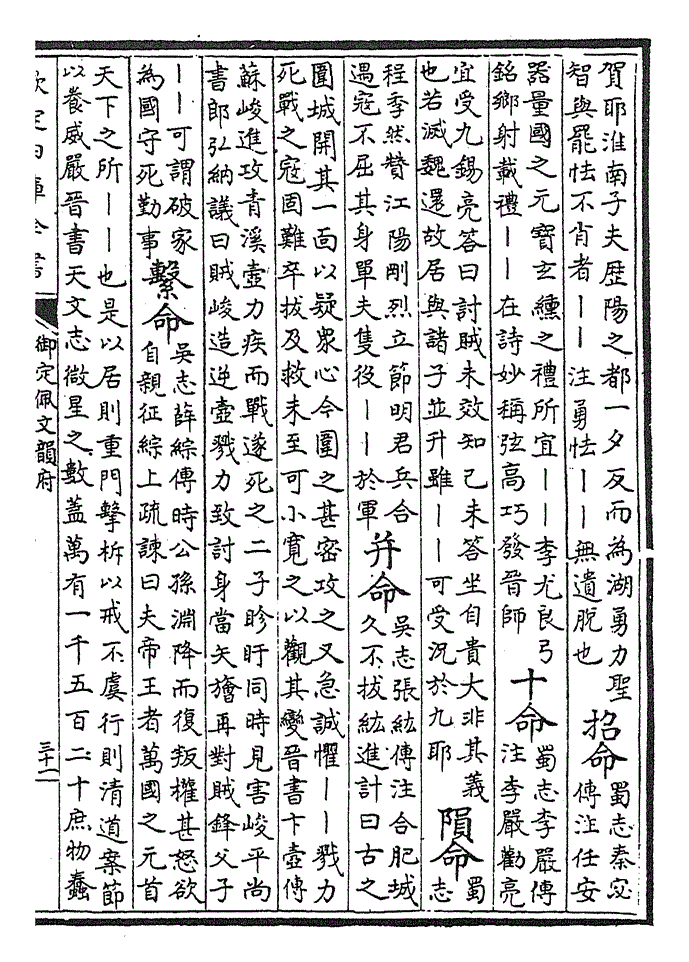 賀耶淮南子夫歴陽之都一夕反而為湖勇力聖
智與罷怯不肖者——注勇怯——無遺脫也
招命
蜀志秦宓
傳注任安
器量國之元寶玄纁之禮所宜——李尤良弓
銘鄉射載禮——在詩妙稱弦高巧發晉師
十命
蜀志李嚴傳
注李嚴勸亮
宜受九錫亮答曰討賊未效知己未答坐自貴大非其義
也若滅魏還故居與諸子並升雖——可受況於九耶
隕命
蜀
志
程季然贊江陽剛烈立節明君兵合
遇寇不屈其身單夫隻役——於軍
并命
吳志張紘傳注合肥城
久不拔紘進計曰古之
圍城開其一面以疑眾心今圍之甚密攻之又急誠懼——戮力
死戰之寇固難卒拔及救未至可小寛之以觀其變晉書卞壼傳
蘇峻進攻青溪壼力疾而戰遂死之二子眕盱同時見害峻平尚
書郎弘納議曰賊峻造逆壼戮力致討身當矢旝再對賊鋒父子
——可謂破家
為國守死勤事
繫命
吳志薛綜傳時公孫淵降而復叛權甚怒欲
自親征綜上疏諫曰夫帝王者萬國之元首
天下之所——也是以居則重門擊柝以戒不虞行則清道案節
以養威嚴晉書天文志微星之數蓋萬有一千五百二十庶物蠢
欽定四庫全書
御定佩文韻府
三十一